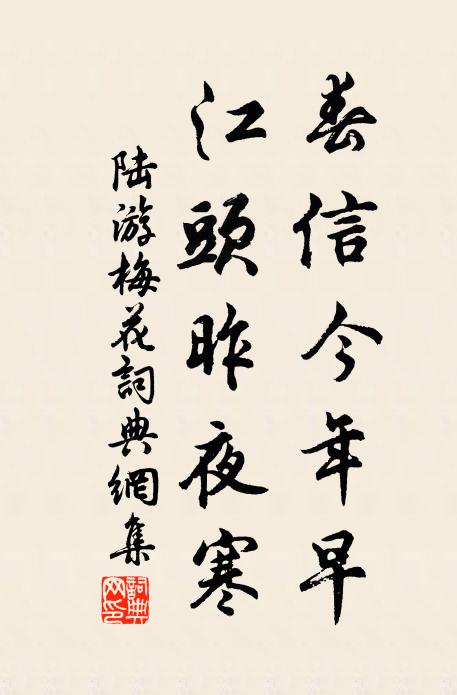 春信今年早
江頭昨夜寒
陆游梅花詞典網集
詞典網印